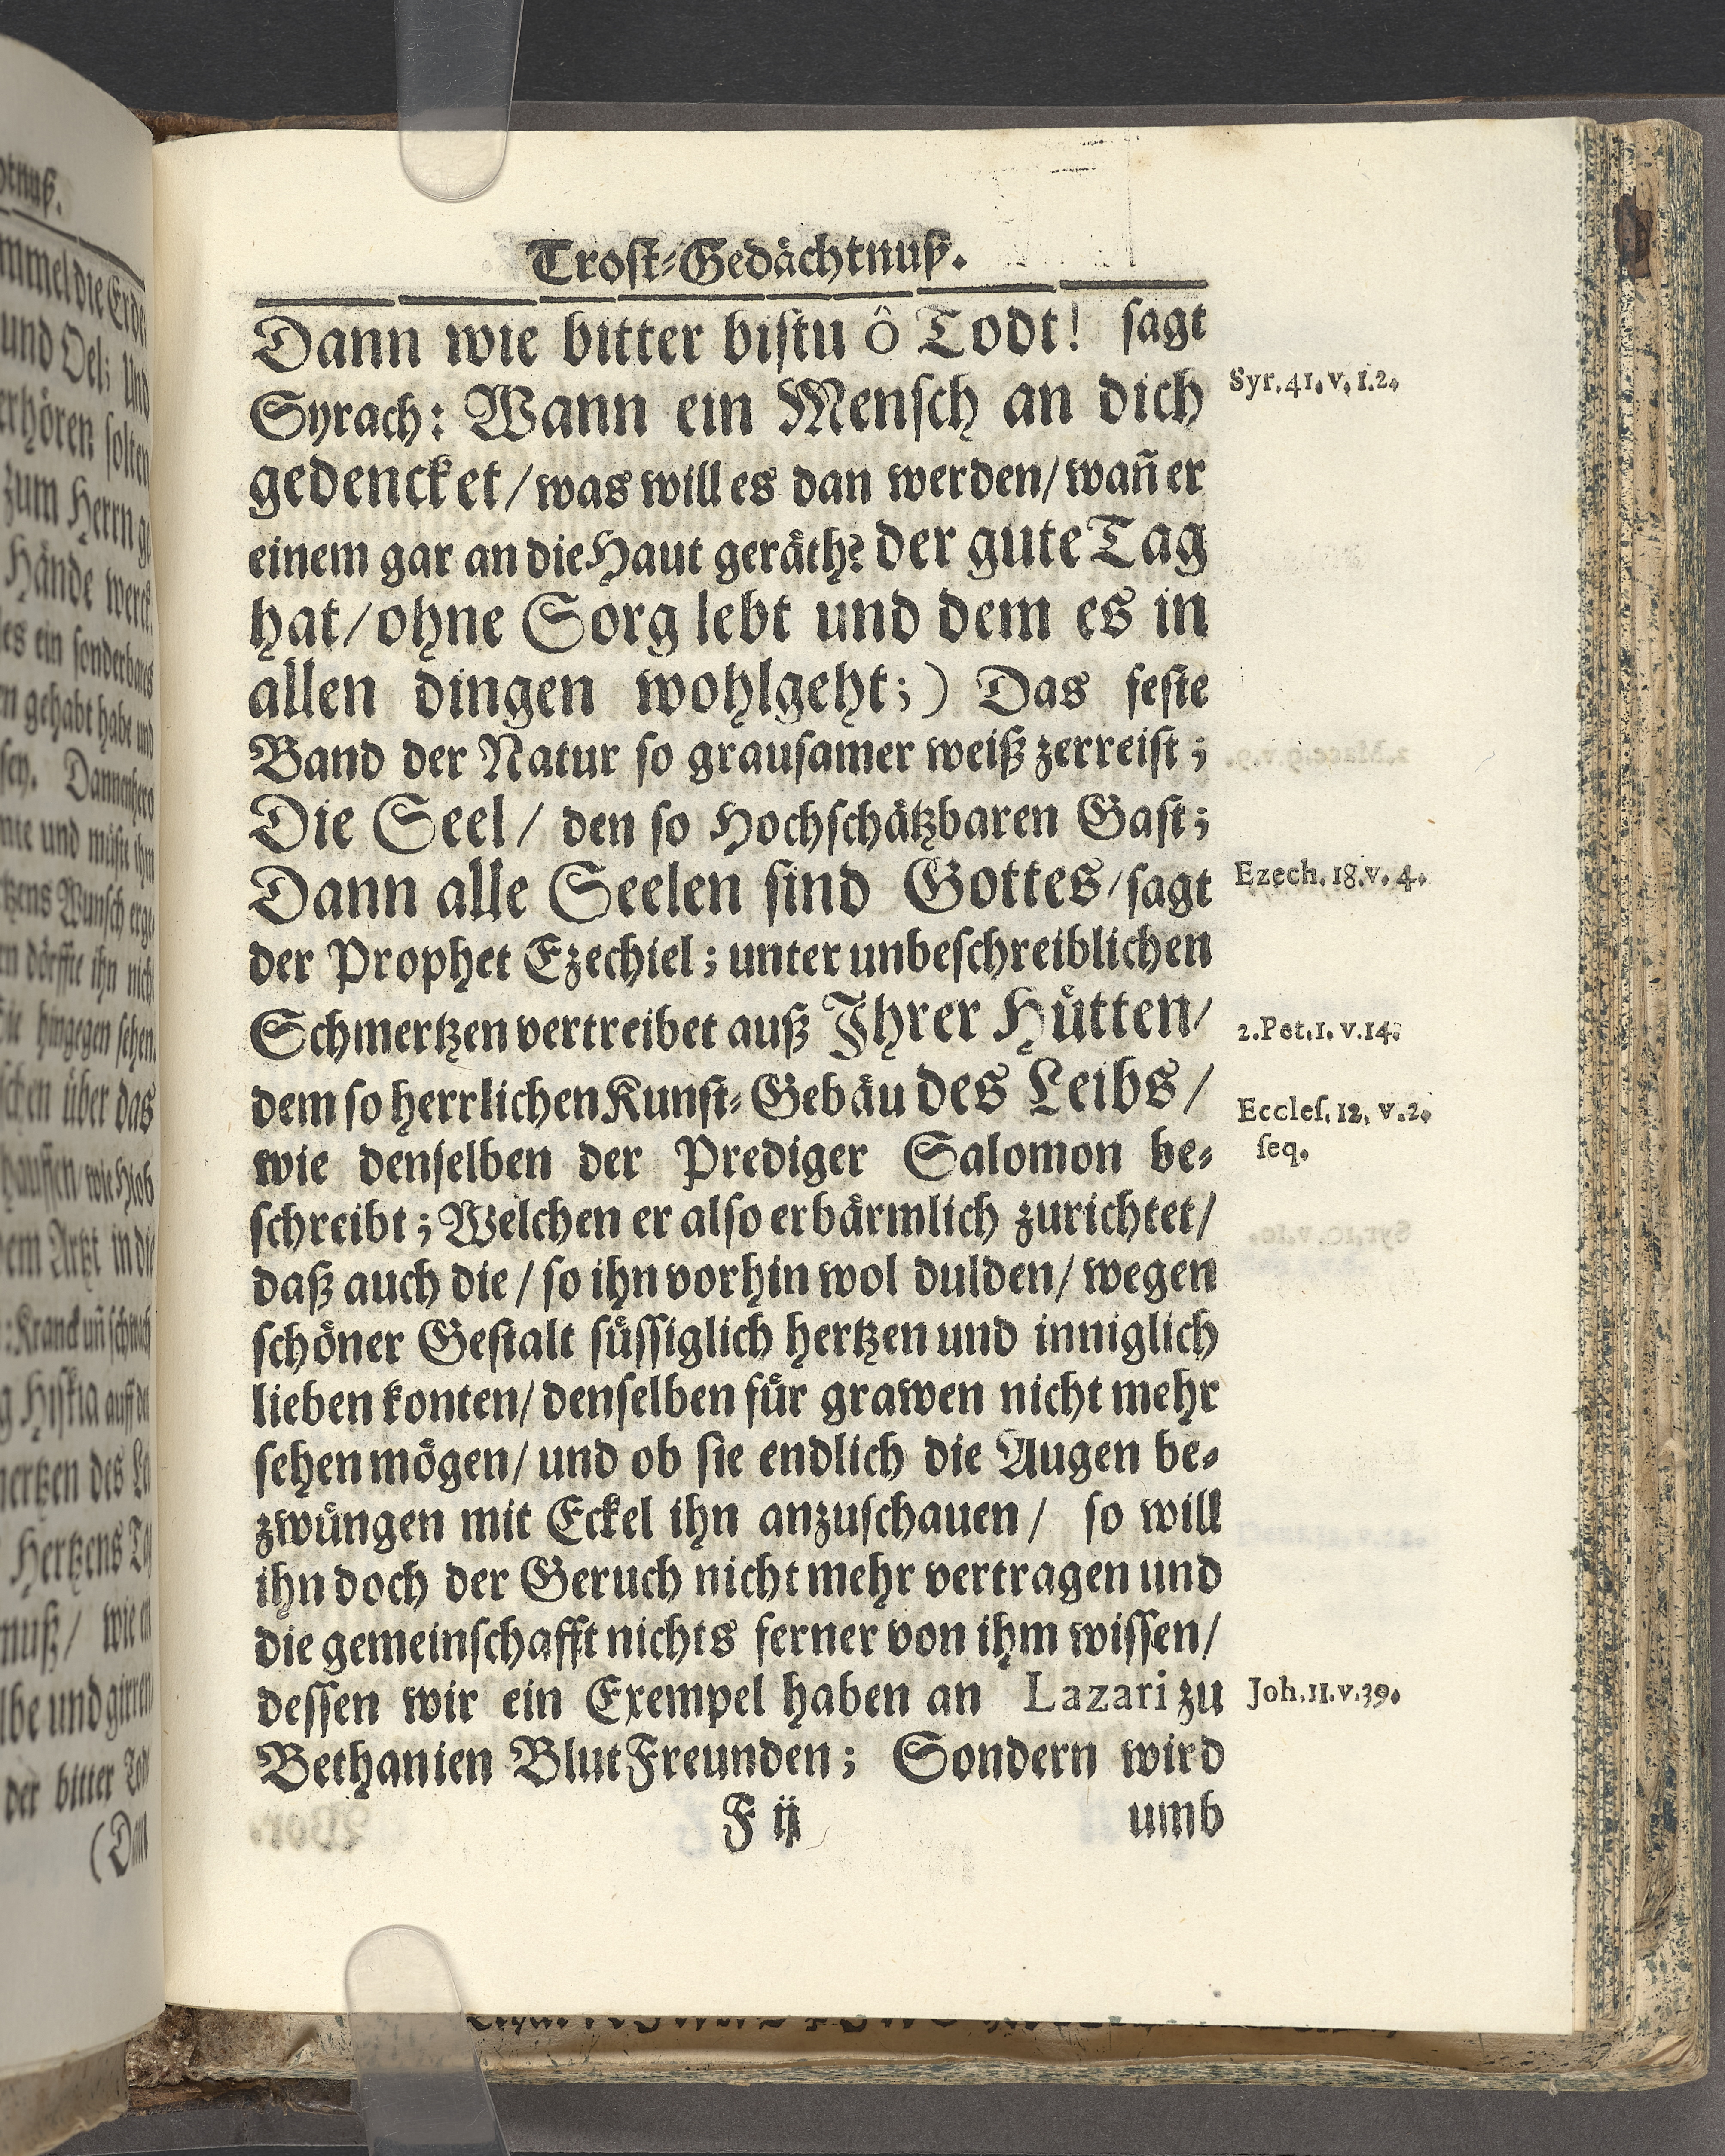 Trost-Gedächtnuß.
Dann wie bitter bistu ô Todt! sagt
Syrach: Wann ein Mensch an dich
gedencket/was will es dan werden/wañ er
einem gar an die Haut geräth? der gute Tag
hat/ohne Sorg lebt und dem es in
allen dingen wohlgeht;) Das feste
Band der Natur so grausamer weiß zerreist;
Die Seel/ den so Hochschätzbaren Gast;
Dann alle Seelen sind Gottes/sagt
der Prophet Ezechiel; unter unbeschreiblichen
Schmertzen vertreibet auß Ihrer Hütten/
dem so herrlichen Kunst-Gebäu des Leibs/
wie denselben der Prediger Salomon be-
schreibt; Welchen er also erbärmlich zurichtet/
daß auch die/so ihn vorhin wol dulden/wegen
schöner Gestalt süssiglich hertzen und inniglich
lieben konten/denselben für grawen nicht mehr
sehen mögen/und ob sie endlich die Augen be-
zwüngen mit Eckel ihn anzuschauen/ so will
ihn doch der Geruch nicht mehr vertragen und
die gemeinschafft nichts ferner von ihm wissen/
dessen wir ein Exempel haben an Lazari zu
Bethanien BlutFreunden; Sondern wird
F ij
umb
Syr. 41. v. 1.2.
Ezech. 18. v. 4.
2. Pet. 1. v. 14.
Eccles. 12. v. 2.
seq.
Joh. 11. v. 39.